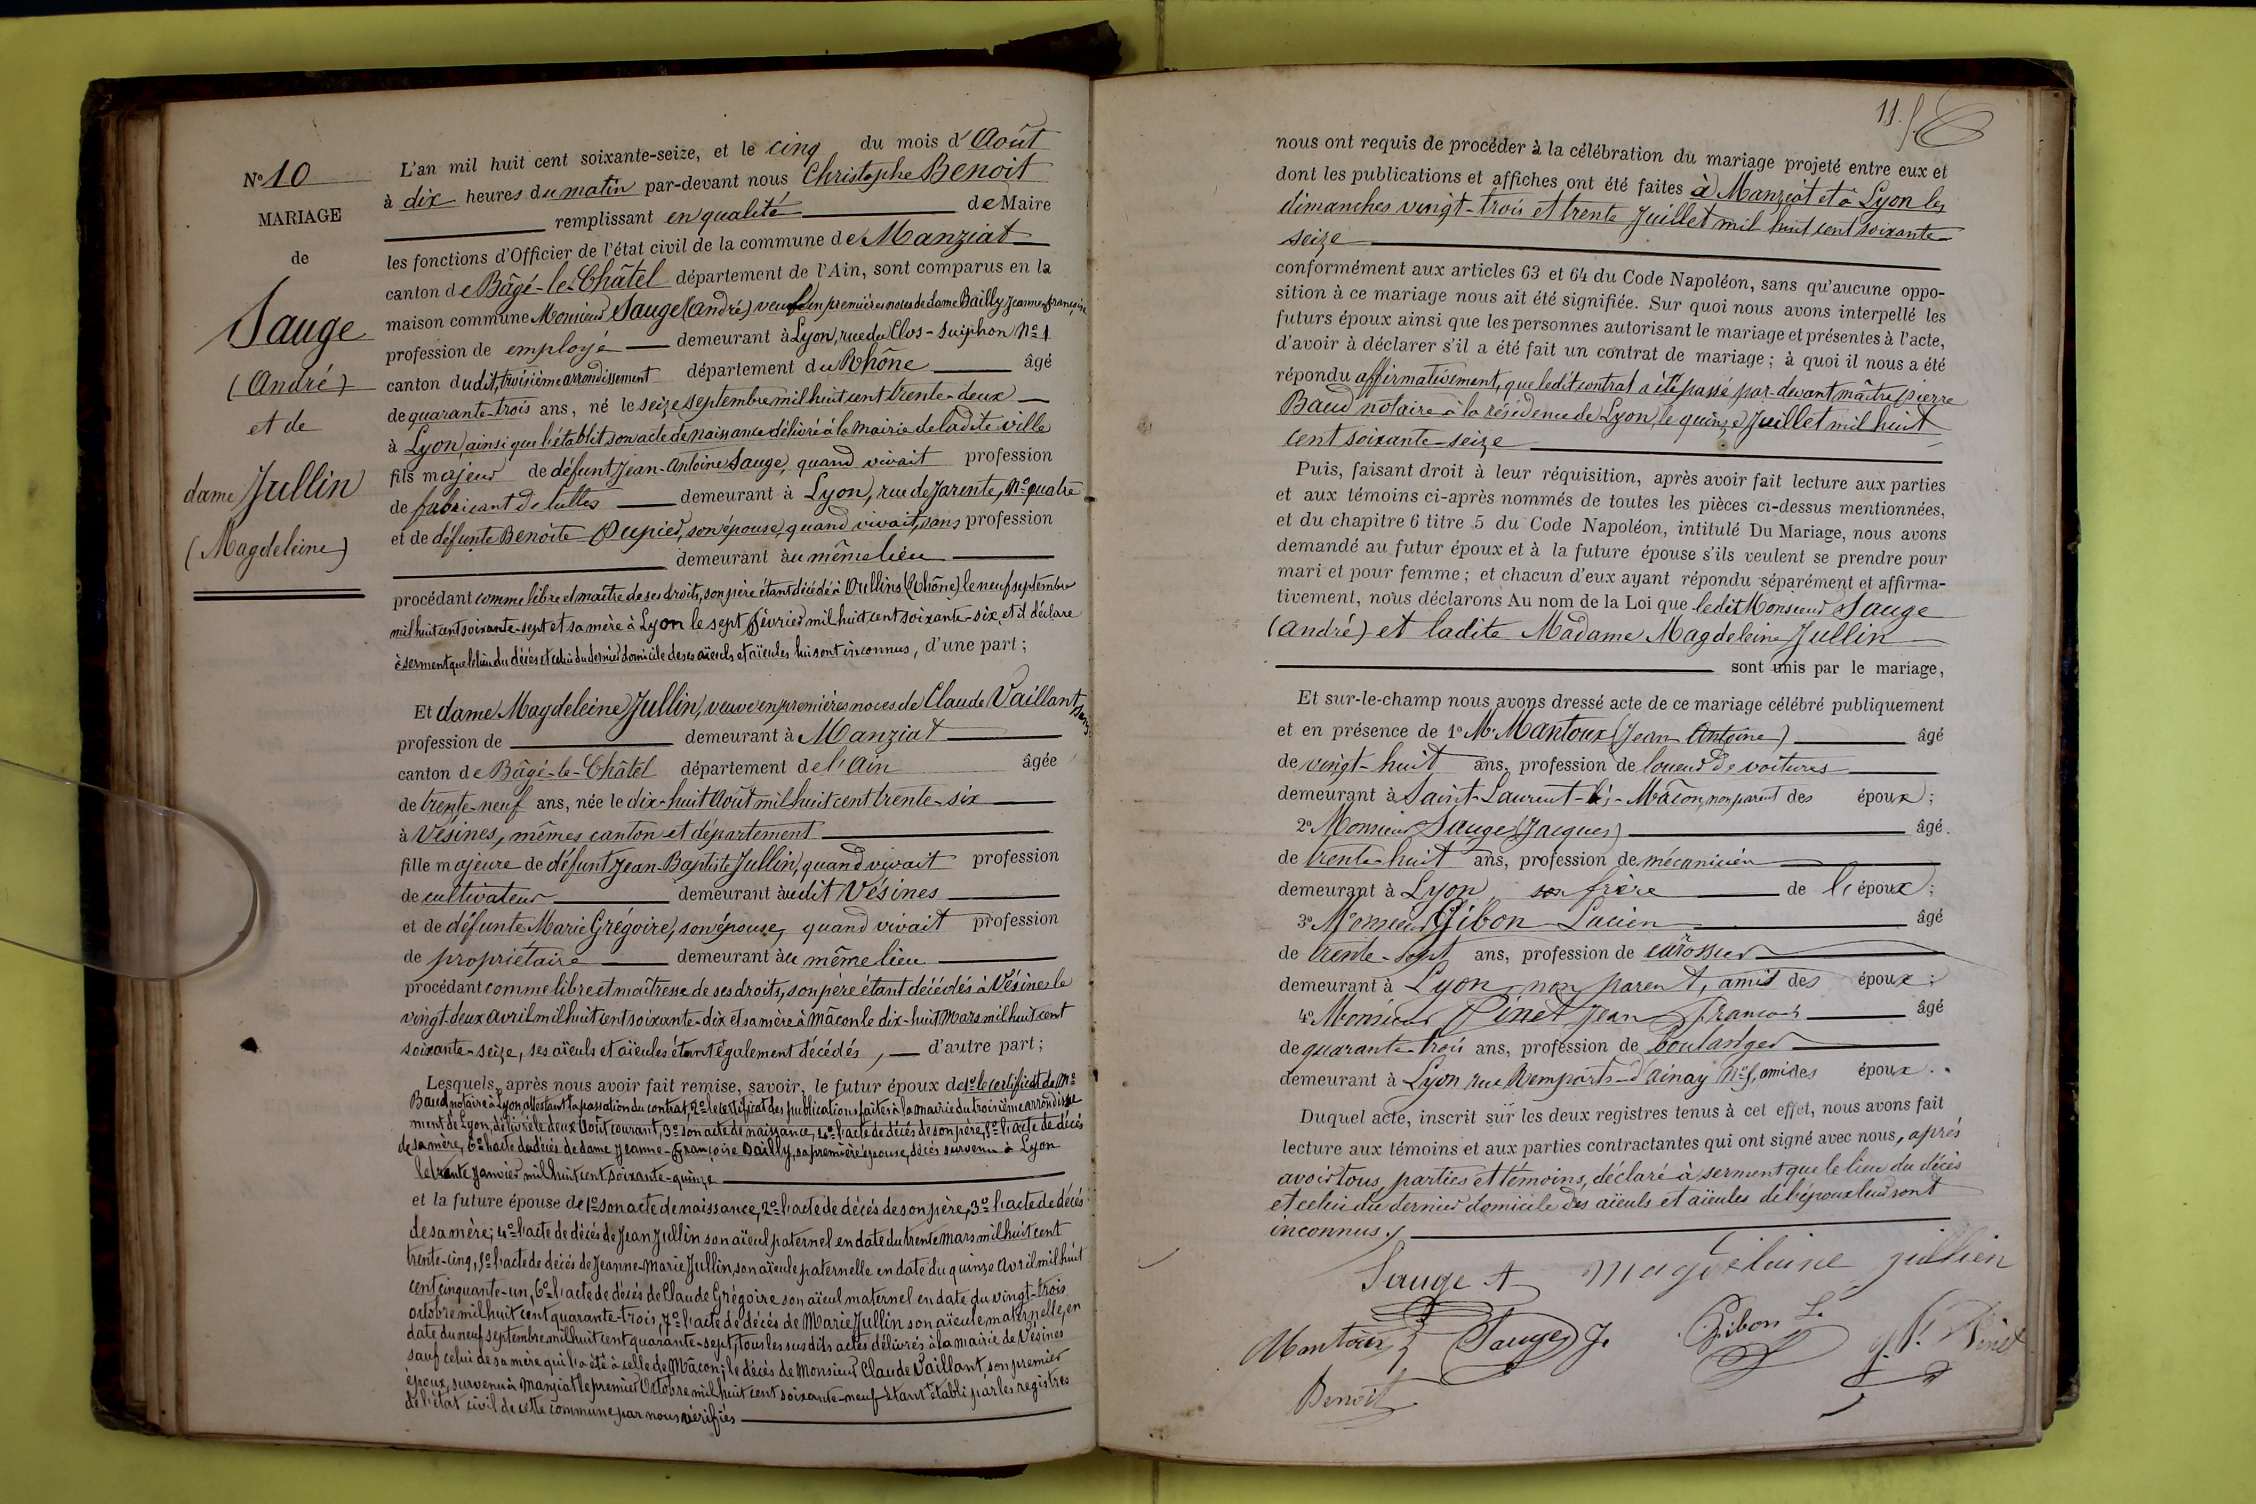 N° 10
MARIAGE
de
Sauge
(André)
et de
dame Jullin
(Magdeleine)
L'an mil huit cent soixante-seize, et le cinq du mois d'Août
à dix heures du matin par-devant nous Christophe Benoit
remplissant en qualité de Maire
les fonctions d'Officier de l'état civil de la commune de Manziat
canton de Bâgé-le-Châtel département de l'Ain, sont comparus en la
maison commune Monsieur Sauge (André) veuf en premières noces de dame Bailly Jeanne françoise
profession de employé demeurant à Lyon, rue du Clos-Suiphon N° 1
canton dudit, troisième arrondissement département du Rhône âgé
de quarante-trois ans, né le seize septembre mil huit cent trente-deux
à Lyon, ainsi que l'établit son acte de naissance délivré à la mairie de ladite ville
fils majeur de défunt Jean-Antoine Sauge, quand vivait profession
de fabricant de tulles demeurant à Lyon, rue de Jarente, N° quatre
et de défunte Benoîte Pupier, son épouse, quand vivait, sans profession
demeurant au même lieu
procédant comme libre et maître de ses droits, son père étant décédé à Oullins (Rhône) le neuf septembre
mil huit cent soixante-sept et sa mère à Lyon le sept février mil huit cent soixante-six, et il déclare
à serment que le lieu du décès et celui du dernier domicile de ses aïeuls et aïeules lui sont inconnus, d'une part ;
Et dame Magdeleine Jullin, veuve en premières noces de Claude Vaillant sans
profession de demeurant à Manziat
canton de Bâgé-le-Châtel département de l'Ain âgée
de trente-neuf ans, née le dix-huit Août mil huit cent trente-six
à Vésines, mêmes canton et département
fille majeure de défunt Jean-Baptiste Jullin, quand vivait profession
de cultivateur demeurant audit Vésines
et de défunte Marie Grégoire, son épouse, quand vivait profession
de propriétaire demeurant au même lieu
procédant comme libre et maîtresse de ses droits, son père étant décédés à Vésines le
vingt-deux avril mil huit cent soixante-dix et sa mère à Mâcon le dix-huit Mars mil huit cent
soixante-seize, ses aïeuls et aïeules étant également décédés, d'autre part ;
Lesquels, après nous avoir fait remise, savoir, le futur époux de 1° le certificat de Me
Baud notaire à Lyon attestant la passation du contrat, 2° le certificat des publications faites à la mairie du troisième arrondisse
ment de Lyon, délivré le deux Août courant, 3° son acte de naissance, 4° l'acte de décès de son père, 5° l'acte de décès
de sa mère, 6° l'acte du décès de dame Jeanne-Françoise Bailly, sa première épouse, décès survenu à Lyon
le trente Janvier mil huit cent soixante-quinze
et la future épouse de 1° son acte de naissance, 2° l'acte de décès de son père, 3° l'acte de décès
de sa mère; 4° l'acte de décès de Jean Jullin son aïeul paternel en date du trente mars mil huit cent
trente-cinq, 5° l'acte de décès de Jeanne-Marie Jullin, son aïeule paternelle en date du quinze Avril mil huit
cent cinquante-un, 6° l'acte de décès de Claude Grégoire son aïeul maternel en date du vingt-trois
octobre mil huit cent quarante-trois, 7° l'acte de décès de Marie Jullin son aïeule maternelle, en
date du neuf septembre mil huit cent quarante-sept, tous les susdits actes délivrés à la mairie de Vésines
sauf celui de sa mère qui l'a été à celle de Mâcon; le décès de Monsieur Claude Vaillant, son premier
époux, survenu à Manziat le premier Octobre mil huit cent soixante-neuf étant établi par les registres
de l'état civil de cette commune par nous vérifiés
11.
nous ont requis de procéder à la célébration du mariage projeté entre eux et
dont les publications et affiches ont été faites à Manziat et à Lyon les
dimanches vingt-trois et trente Juillet mil huit cent soixante
seize
conformément aux articles 63 et 64 du Code Napoléon, sans qu'aucune oppo-
sition à ce mariage nous ait été signifiée. Sur quoi nous avons interpellé les
futurs époux ainsi que les personnes autorisant le mariage et présentes à l'acte,
d'avoir à déclarer s'il a été fait un contrat de mariage ; à quoi il nous a été
répondu affirmativement, que ledit contrat a été passé par-devant maître pierre
Baud notaire à la résidence de Lyon, le quinze Juillet mil huit
cent soixante-seize
Puis, faisant droit à leur réquisition, après avoir fait lecture aux parties
et aux témoins ci-après nommés de toutes les pièces ci-dessus mentionnées,
et du chapitre 6 titre 5 du Code Napoléon, intitulé Du Mariage, nous avons
demandé au futur époux et à la future épouse s'ils veulent se prendre pour
mari et pour femme ; et chacun d'eux ayant répondu séparément et affirma-
tivement, nous déclarons Au nom de la Loi que ledit Monsieur Sauge
(André) et ladite Madame Magdeleine Jullin
sont unis par le mariage,
Et sur-le-champ nous avons dressé acte de ce mariage célébré publiquement
et en présence de 1° Mr Mantoux (Jean Antoine) âgé
de vingt-huit ans, profession de loueur de voitures
demeurant à Saint-Laurent-lès-Mâcon, non parent des époux ;
2° Monsieur Sauge (Jacques) âgé
de trente-huit ans, profession de mécanicien
demeurant à Lyon, son frère de l'époux ;
3° Monsieur Gibon Lucien âgé
de trente-sept ans, profession de carossier
demeurant à Lyon non parent, amis des époux ;
4° Monsieur Pinet Jean François âgé
de quarante-trois ans, profession de boulanger
demeurant à Lyon rue Remparts-d'ainay N° 5, ami des époux.
Duquel acte, inscrit sur les deux registres tenus à cet effet, nous avons fait
lecture aux témoins et aux parties contractantes qui ont signé avec nous, après
avoir tous, parties et témoins, déclaré à serment que le lieu du décès
et celui du dernier domicile des aïeuls et aïeules de l'époux leur sont
inconnus.
Sauge A Magdeleine jullien
Mantoux Sauge J. Gibon L. J. F. Pinet
Benoit